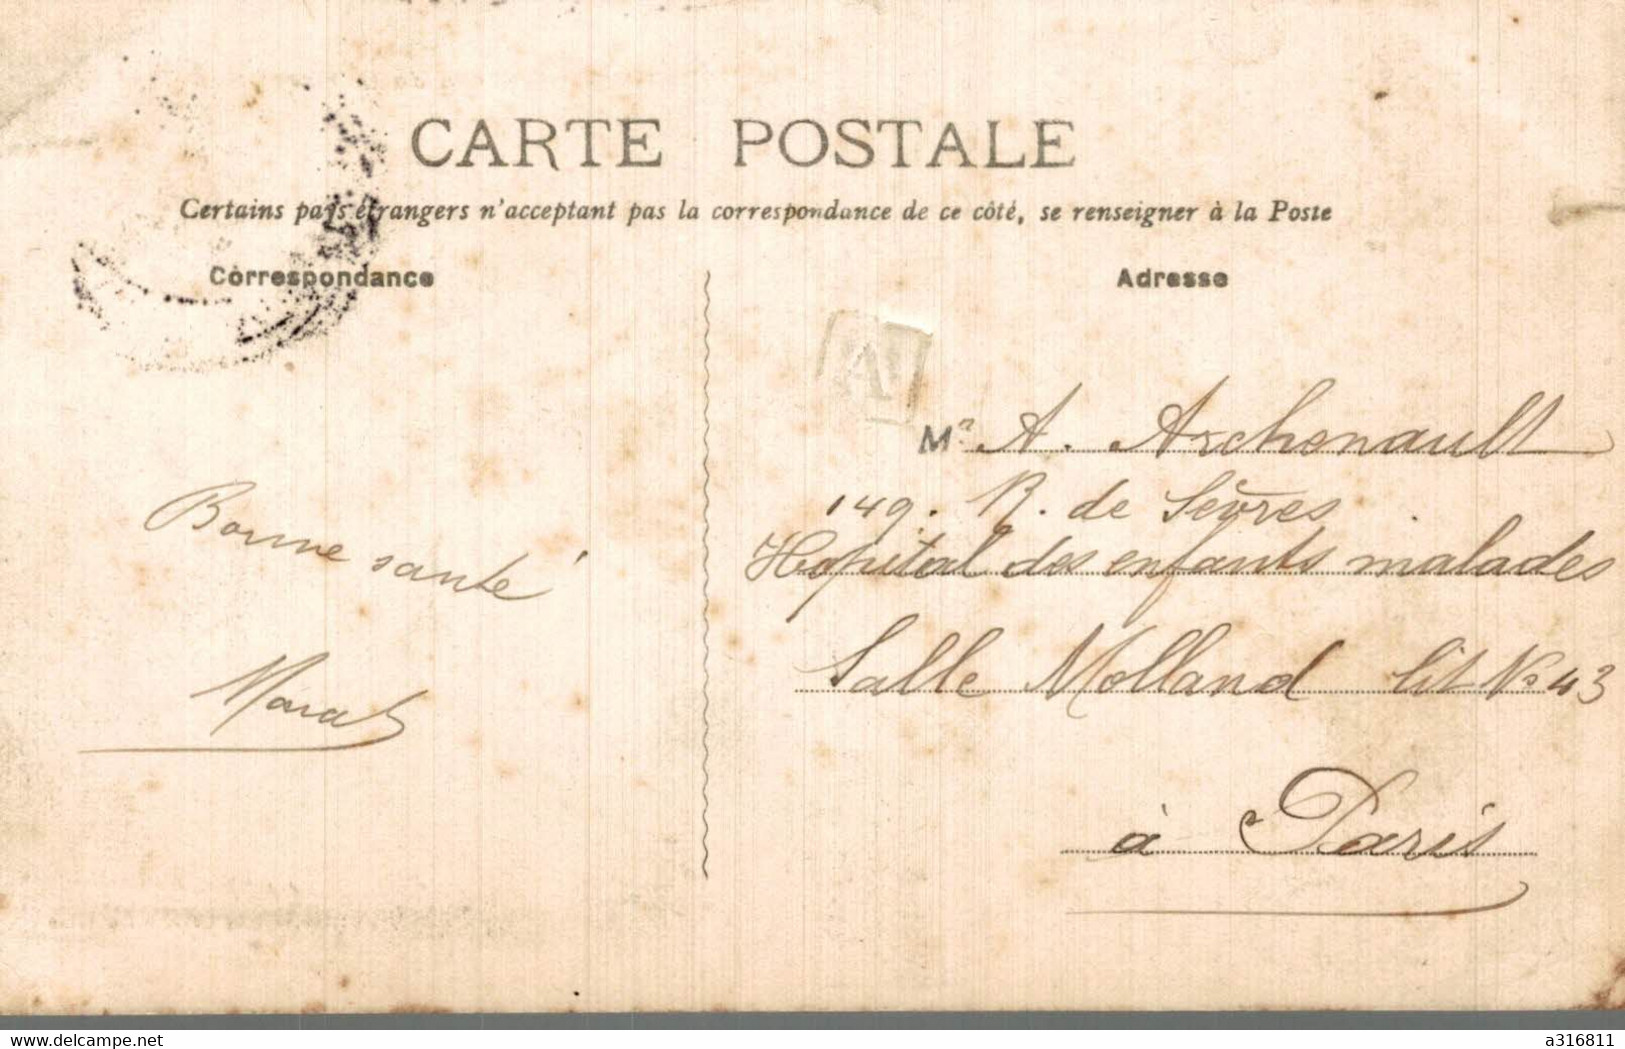 CARTE POSTALE
Certains pays étrangers n'acceptant pas la correspondance de ce côté, se renseigner à la Poste
Correspondance
Adresse
A
Mr A. Archenault
149. R. de Sèvres
Hopital des enfants malades
Salle Molland lit No 43
à Paris
Bonne santé
Marat
Delcampe.net
a316811